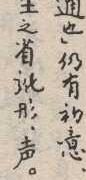 通也」仍有初意、
主之省玼形、声。